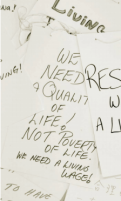 NA!
Living
VING!
WE
NEED
A QUALITY
OF
LIFE!
NOT POVERTY
OF LIFE.
WE NEED A LIVING
WAGE!
RES
W
A LI
TO HAVE